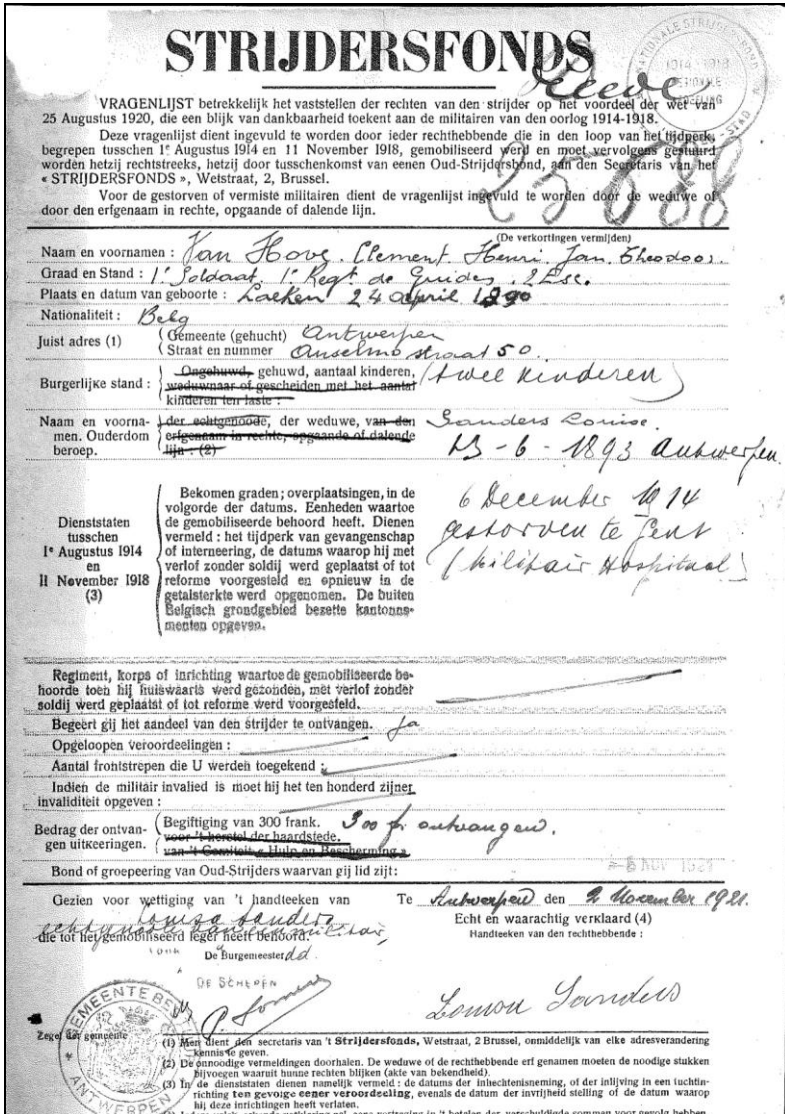 STRIJDERSFONDS
NATIONALE STRIJDERSFOND
1914-1918
VRAGENLIJST betrekkelijk het vaststellen der rechten van den strijder op het voordeel der wet van
25 Augustus 1920, die een blijk van dankbaarheid toekent aan de militairen van den oorlog 1914-1918.
Deze vragenlijst dient ingevuld te worden door ieder rechthebbende die in den loop van het tijdperk,
begrepen tusschen 1e Augustus 1914 en 11 November 1918, gemobiliseerd werd en moet vervolgens gestuurd
worden hetzij rechtstreeks, hetzij door tusschenkomst van eenen Oud-Strijdersbond, aan den Secretaris van het
« STRIJDERSFONDS », Wetstraat, 2, Brussel.
Voor de gestorven of vermiste militairen dient de vragenlijst ingevuld te worden door de weduwe of
door den erfgenaam in rechte, opgaande of dalende lijn.
(De verkortingen vermijden)
Naam en voornamen : Van Hove. Clement. Henri. Jan. Theodoor.
Graad en Stand : 1e Soldaat, 1e Regt de Guides, 2 Esc.
Plaats en datum van geboorte : Laeken 24 april 1890
Nationaliteit : Belg
Juist adres (1) Gemeente (gehucht) Antwerpen
Straat en nummer Anselmostraat 50.
Burgerlijke stand : Ongehuwd, gehuwd, aantaal kinderen, (twee kinderen)
weduwnaar of gescheiden met het aantal
kinderen ten laste :
Naam en voorna- der echtgenoode, der weduwe, van den Sanders Louise.
men. Ouderdom erfgenaam in rechte, opgaande of dalende
beroep. lijn : (2) 13-6-1893 Antwerpen.
Dienststaten
tusschen
1e Augustus 1914
en
11 November 1918
(3)
Bekomen graden; overplaatsingen, in de
volgorde der datums. Eenheden waartoe
de gemobiliseerde behoord heeft. Dienen
vermeld : het tijdperk van gevangenschap
of interneering, de datums waarop hij met
verlof zonder soldij werd geplaatst of tot
reforme voorgesteld en opnieuw in de
getalsterkte werd opgenomen. De buiten
Belgisch grondgebied bezette kantonne-
menten opgeven.
6 December 1914
gestorven te Gent
(Militair Hospitaal)
Regiment, korps of inrichting waartoe de gemobiliseerde be-
hoorde toen hij huiswaarts werd gezonden, met verlof zonder
soldij werd geplaatst of tot reforme werd voorgesteld.
Begeert gij het aandeel van den strijder te ontvangen. Ja
Opgeloopen veroordeelingen :
Aantal frontstrepen die U werden toegekend :
Indien de militair invalied is moet hij het ten honderd zijner
invaliditeit opgeven :
Bedrag der ontvan-
gen uitkeeringen.
Begiftiging van 300 frank. 300 fr. ontvangen.
voor 't herstel der haardstede.
van 't Comiteit « Hulp en Bescherming »
Bond of groepeering van Oud-Strijders waarvan gij lid zijt:
NOV 1921
Gezien voor wettiging van 't handteeken van
Louisa Sanders
echtgenoote van een militair,
die tot het gemobiliseerd leger heeft behoord.
De Burgemeester dd.
DE SCHEPEN
Te Antwerpen den 2 November 1921.
Echt en waarachtig verklaard (4)
Handteeken van den rechthebbende :
Sanders
Zegel der gemeente
GEMEENTE
ANTWERPEN
(1) Men dient den secretaris van 't Strijdersfonds, Wetstraat, 2 Brussel, onmiddelijk van elke adresverandering
kennis te geven.
(2) De onnoodige vermeldingen doorhalen. De weduwe of de rechthebbende erf genamen moeten de noodige stukken
bijvoegen waaruit hunne rechten blijken (akte van bekendheid).
(3) In de dienststaten dienen namelijk vermeld : de datums der inhechtenisneming, of der inlijving in een tuchtin-
richting ten gevolge eener veroordeeling, evenals de datum der invrijheid stelling of de datum waarop
hij deze inrichtingen heeft verlaten.